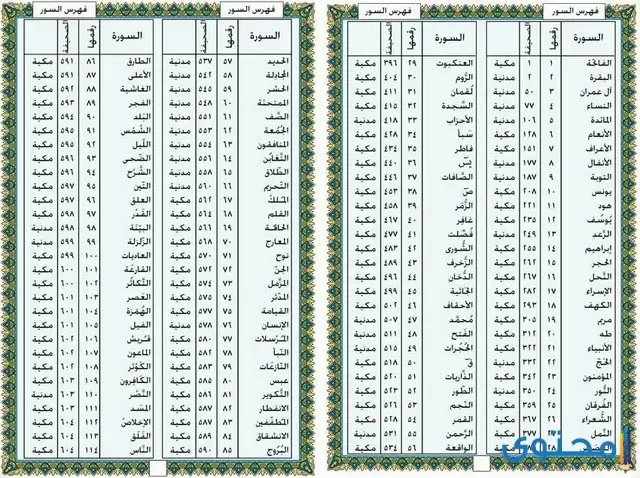 فهرس السور
السورة رقمها الصحيفة
الفاتحة ١ ١ مكية
البقرة ٢ ٢ مدنية
آل عمران ٣ ٥٠ مدنية
النساء ٤ ٧٧ مدنية
المائدة ٥ ١٠٦ مدنية
الأنعام ٦ ١٢٨ مكية
الأعراف ٧ ١٥١ مكية
الأنفال ٨ ١٧٧ مدنية
التوبة ٩ ١٨٧ مدنية
يونس ١٠ ٢٠٨ مكية
هود ١١ ٢٢١ مكية
يوسف ١٢ ٢٣٥ مكية
الرعد ١٣ ٢٤٩ مدنية
إبراهيم ١٤ ٢٥٥ مكية
الحجر ١٥ ٢٦٢ مكية
النحل ١٦ ٢٦٧ مكية
الإسراء ١٧ ٢٨٢ مكية
الكهف ١٨ ٢٩٣ مكية
مريم ١٩ ٣٠٥ مكية
طه ٢٠ ٣١٢ مكية
الأنبياء ٢١ ٣٢٢ مكية
الحج ٢٢ ٣٣٢ مدنية
المؤمنون ٢٣ ٣٤٢ مكية
النور ٢٤ ٣٥٠ مدنية
الفرقان ٢٥ ٣٥٩ مكية
الشعراء ٢٦ ٣٦٧ مكية
النمل ٣٧٧ مكية
فهرس السور
السورة رقمها الصحيفة
العنكبوت ٢٩ ٣٩٦ مكية
الروم ٣٠ ٤٠٤ مكية
لقمان ٣١ ٤١١ مكية
السجدة ٣٢ ٤١٥ مكية
الأحزاب ٣٣ ٤١٨ مدنية
سبأ ٣٤ ٤٢٨ مكية
فاطر ٣٥ ٤٣٤ مكية
يس ٣٦ ٤٤٠ مكية
الصافات ٣٧ ٤٤٦ مكية
ص ٣٨ ٤٥٣ مكية
الزمر ٣٩ ٤٥٨ مكية
غافر ٤٠ ٤٦٧ مكية
فصلت ٤١ ٤٧٧ مكية
الشورى ٤٢ ٤٨٣ مكية
الزخرف ٤٣ ٤٨٩ مكية
الدخان ٤٤ ٤٩٦ مكية
الجاثية ٤٥ ٤٩٩ مكية
الأحقاف ٤٦ ٥٠٢ مكية
محمد ٤٧ ٥٠٧ مدنية
الفتح ٤٨ ٥١١ مدنية
الحجرات ٤٩ ٥١٥ مدنية
ق ٥٠ ٥١٨ مكية
الذاريات ٥١ ٥٢٠ مكية
الطور ٥٢ ٥٢٣ مكية
النجم ٥٣ ٥٢٦ مكية
القمر ٥٤ ٥٢٨ مكية
الرحمن ٥٥ ٥٣١ مدنية
الواقعة ٥٦ ٥٣٤ مكية
فهرس السور
السورة رقمها الصحيفة
الحديد ٥٧ ٥٣٧ مدنية
المجادلة ٥٨ ٥٤٢ مدنية
الحشر ٥٩ ٥٤٥ مدنية
الممتحنة ٦٠ ٥٤٨ مدنية
الصف ٦١ ٥٥١ مدنية
الجمعة ٦٢ ٥٥٣ مدنية
المنافقون ٦٣ ٥٥٤ مدنية
التغابن ٦٤ ٥٥٦ مدنية
الطلاق ٦٥ ٥٥٨ مدنية
التحريم ٦٦ ٥٦٠ مدنية
الملك ٦٧ ٥٦٢ مكية
القلم ٦٨ ٥٦٤ مكية
الحاقة ٦٩ ٥٦٦ مكية
المعارج ٧٠ ٥٦٨ مكية
نوح ٧١ ٥٧٠ مكية
الجن ٧٢ ٥٧٢ مكية
المزمل ٧٣ ٥٧٤ مكية
المدثر ٧٤ ٥٧٥ مكية
القيامة ٧٥ ٥٧٧ مكية
الإنسان ٧٦ ٥٧٨ مدنية
المرسلات ٧٧ ٥٨٠ مكية
النبأ ٧٨ ٥٨٢ مكية
النازعات ٧٩ ٥٨٣ مكية
عبس ٨٠ ٥٨٥ مكية
التكوير ٨١ ٥٨٦ مكية
الانفطار ٨٢ ٥٨٧ مكية
المطففين ٨٣ ٥٨٧ مكية
الانشقاق ٨٤ ٥٨٩ مكية
البروج ٨٥ ٥٩٠ مكية
فهرس السور
السورة رقمها الصحيفة
الطارق ٨٦ ٥٩١ مكية
الأعلى ٨٧ ٥٩١ مكية
الغاشية ٨٨ ٥٩٢ مكية
الفجر ٨٩ ٥٩٣ مكية
البلد ٩٠ ٥٩٤ مكية
الشمس ٩١ ٥٩٥ مكية
الليل ٩٢ ٥٩٥ مكية
الضحى ٩٣ ٥٩٦ مكية
الشرح ٩٤ ٥٩٦ مكية
التين ٩٥ ٥٩٧ مكية
العلق ٩٦ ٥٩٧ مكية
القدر ٩٧ ٥٩٨ مكية
البينة ٩٨ ٥٩٨ مدنية
الزلزلة ٩٩ ٥٩٩ مدنية
العاديات ١٠٠ ٥٩٩ مكية
القارعة ١٠١ ٦٠٠ مكية
التكاثر ١٠٢ ٦٠٠ مكية
العصر ١٠٣ ٦٠١ مكية
الهمزة ١٠٤ ٦٠١ مكية
الفيل ١٠٥ ٦٠١ مكية
قريش ١٠٦ ٦٠٢ مكية
الماعون ١٠٧ ٦٠٢ مكية
الكوثر ١٠٨ ٦٠٢ مكية
الكافرون ١٠٩ ٦٠٣ مكية
النصر ١١٠ ٦٠٣ مدنية
المسد ١١١ ٦٠٣ مكية
الإخلاص ١١٢ ٦٠٤ مكية
الفلق ١١٣ ٦٠٤ مكية
الناس ١١٤ ٦٠٤ مكية
محتوى